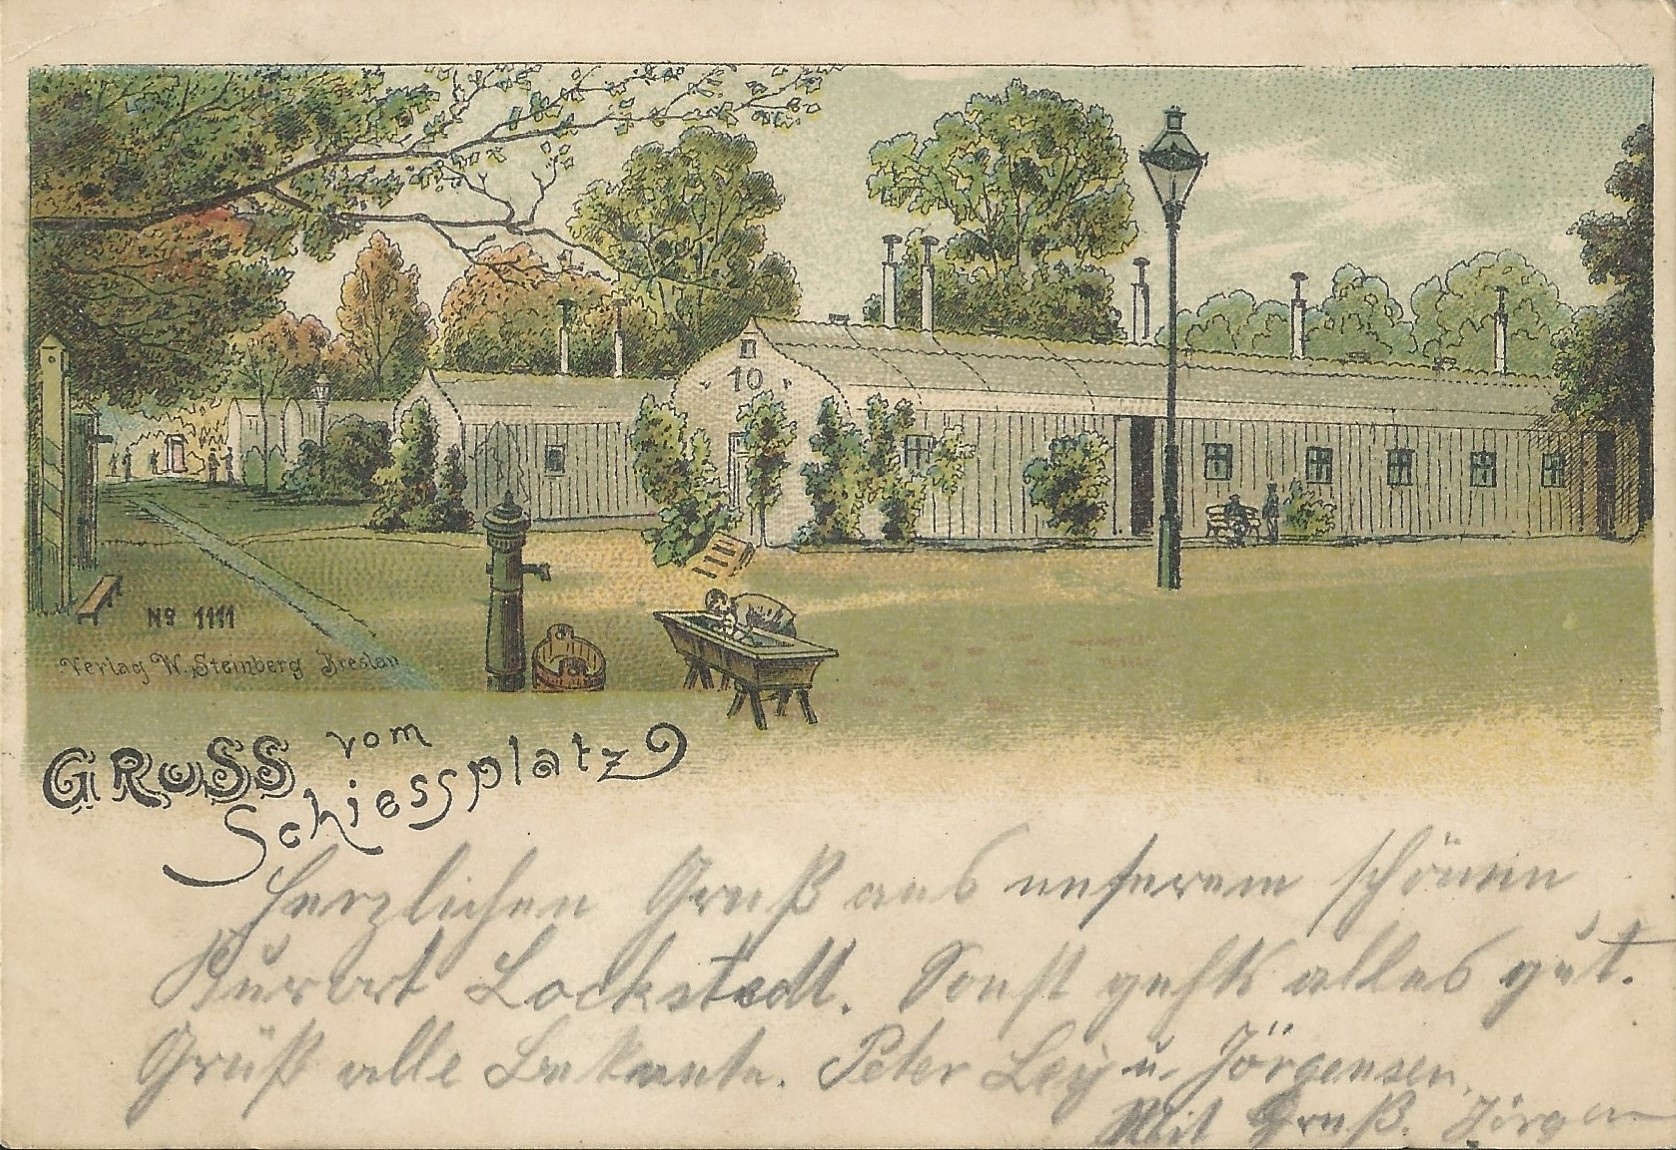 10
Nº 1111
Verlag W. Steinberg Breslau
GRUSS vom
Schiessplatz
Herzlichen Gruß aus unserem schönen
Kurort Lockstedt. Sonst gehts alles gut.
Grüß alle Bekannte. Peter Ley u. Jörgensen.
Mit Gruß. Jörgen